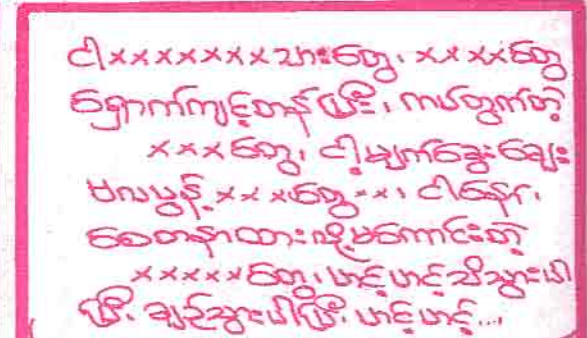 ငါ×××××××သားတွေ၊ ××××တွေ
ရှောက်ကျင့်တန်ပြီး၊ ကယ်တွက်တဲ့
×××တွေ၊ ငါ့မျက်ခွေးချေး
မလမွန့် ×××တွေ××၊ ငါနော်၊
စေတနာထားလို့မကောင်းတဲ့
×××××တွေ၊ ဟင့်ဟင့်သိသွားပါ
ပြီ၊ ချဉ်သွားပါပြီ၊ ဟင့်ဟင့်...၊